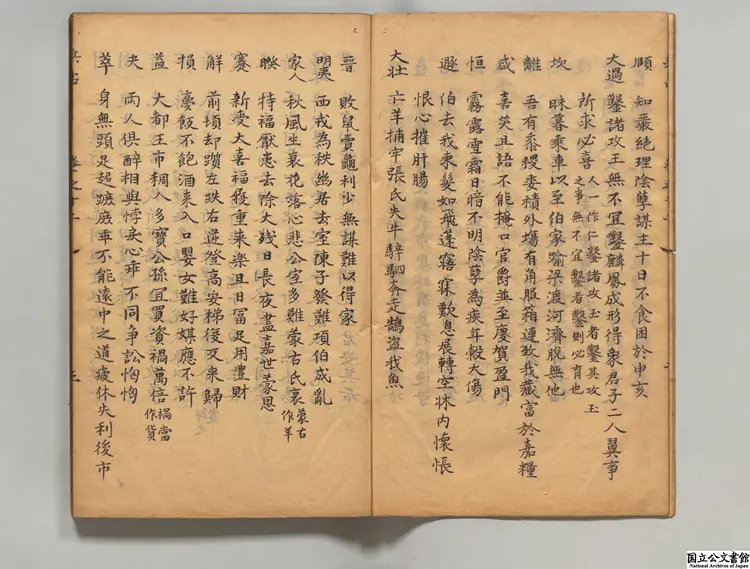 頤　知嚴絶理陰孽謀主十日不食困於申亥
大過　鑿諸攻玉無不宜鑿麟鳳成形得象君子二人翼事
所求必喜　人一作仁鑿諸攻玉者鑿其攻玉
之事無不宜鑿者鑿則必育也
坎　昧暮乗車以至伯家踰梁渡河濟脱無他
離　吾有黍稷委積外塲有角服箱連致我藏富於嘉糧
咸　喜笑且語不能掩口官爵並至慶賀盈門
恒　霧露雪霜日暗不明陰孽為疾年穀大傷
遯　伯去我東髪如飛蓬寤寐歎息展轉空牀内懷悵
恨心摧肝腸
大壯　亡羊捕牢張氏失牛騂駵奔走鵲盗我魚
晋　販鼠賣龜利少無謀難以得家
明夷　西戎為秩幽居去室陳子發難項伯成亂
家人　秋風生哀花落心悲公室多難蒙古氏衰　蒙古
作羊
睽　特福厭患去除大殘日長夜盡嘉世蒙恩
蹇　新受大喜福發重来樂且日富足用豊財
解　前頃却躓左跌右逆登高安梯復反来歸
損　饔飯不飽酒来入口嬰女難好媒應不許
益　大都王市稠人多寳公孫冝賈資禍萬倍　禍當
作貨
夬　両人俱醉相與悖戻心乖不同爭訟恟恟
萃　身無頭足超蹠庶乖不能遠中之道疲休失利後市
国立公文書館
National Archives of Japan